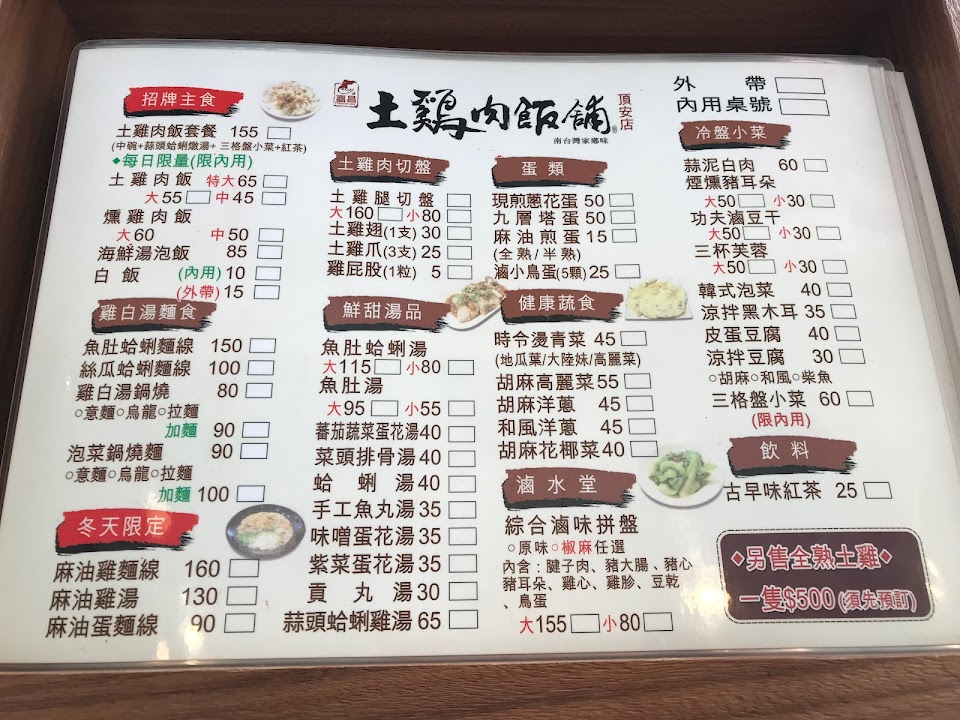 嘉昌
土鷄肉飯舖
頂安店
南台灣家鄉味
外 帶
內用桌號
招牌主食
土雞肉飯套餐 155
(中碗+蒜頭蛤蜊燉湯+三格盤小菜+紅茶)
◆每日限量(限內用)
土雞肉飯 特大65
大55 中45
燻雞肉飯
大60 中50
海鮮湯泡飯 85
白飯 (內用)10
(外帶)15
雞白湯麵食
魚肚蛤蜊麵線 150
絲瓜蛤蜊麵線 100
雞白湯鍋燒 80
○意麵○烏龍○拉麵
加麵 90
泡菜鍋燒麵 90
○意麵○烏龍○拉麵
加麵 100
冬天限定
麻油雞麵線 160
麻油雞湯 130
麻油蛋麵線 90
土雞肉切盤
土雞腿切盤
大160 小80
土雞翅(1支) 30
土雞爪(3支) 25
雞屁股(1粒) 5
鮮甜湯品
魚肚蛤蜊湯
大115 小80
魚肚湯
大95 小55
蕃茄蔬菜蛋花湯40
菜頭排骨湯 40
蛤蜊湯 40
手工魚丸湯 35
味噌蛋花湯 35
紫菜蛋花湯 35
貢丸湯 30
蒜頭蛤蜊雞湯 65
蛋類
現煎蔥花蛋 50
九層塔蛋 50
麻油煎蛋 15
(全熟/半熟)
滷小鳥蛋(5顆) 25
健康蔬食
時令燙青菜 45
(地瓜葉/大陸妹/高麗菜)
胡麻高麗菜 55
胡麻洋蔥 45
和風洋蔥 45
胡麻花椰菜 40
滷水堂
綜合滷味拼盤
○原味○椒麻任選
內含：腱子肉、豬大腸、豬心
豬耳朵、雞心、雞胗、豆乾
、鳥蛋
大155 小80
冷盤小菜
蒜泥白肉 60
煙燻豬耳朵
大50 小30
功夫滷豆干
大50 小30
三杯芙蓉
大50 小30
韓式泡菜 40
涼拌黑木耳 35
皮蛋豆腐 40
涼拌豆腐 30
○胡麻○和風○柴魚
三格盤小菜 60
(限內用)
飲料
古早味紅茶 25
◆另售全熟土雞◆
一隻$500(須先預訂)